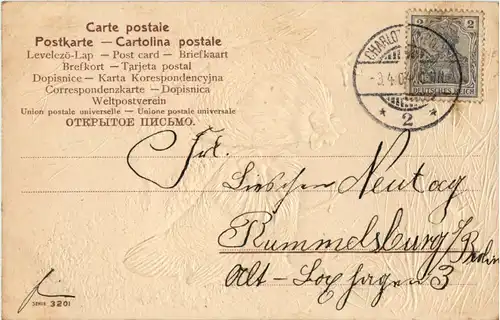 Carte postale
Postkarte — Cartolina postale
Levelező-Lap — Post card — Briefkaart
Brefkort — Tarjeta postal
Dopisnice — Karta Korespondencyjna
Correspondenzkarte — Dopisnica
Weltpostverein
Union postale universelle — Unione postale universale
ОТКРЫТОЕ ПИСЬМО.
2 2
DEUTSCHES REICH
2
Frl.
Lieschen Neutag
Rummelsburg b/Berlin
Alt-Boxhagen 3
3201